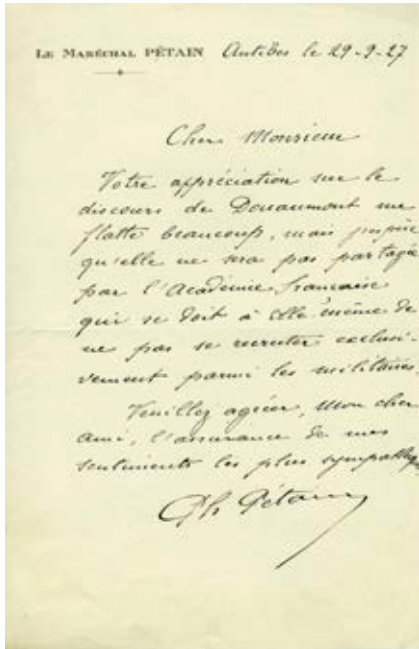 LE MARÉCHAL PÉTAIN Antibes le 29-9-27
Cher Monsieur
Votre appréciation sur le
discours de Douaumont me
flatte beaucoup, mais j'espère
qu'elle ne sera pas partagée
par l'Académie française
qui se doit à elle même de
ne pas se recruter exclusi-
vement parmi les militaires.
Veuillez agréer, Mon cher
ami, l'assurance de mes
sentiments les plus sympathiques
Ph Pétain